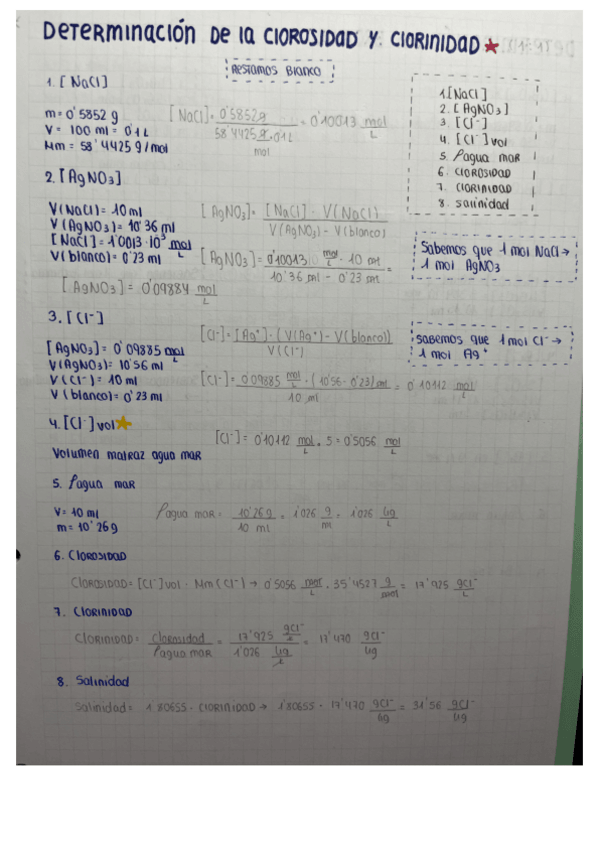 DETERMINACIÓN DE LA CLOROSIDAD Y CLORINIDAD
RESTAMOS BLANCO
1. [NaCl]
m = 0'5852 g
V = 100 ml = 0'1 L
Mm = 58'4425 g/mol
[NaCl] = 0'5852g / 58'4425 g/mol · 0'1L = 0'10013 mol/L
1. [NaCl]
2. [AgNO3]
3. [Cl-]
4. [Cl-]vol
5. ρagua mar
6. CLOROSIDAD
7. CLORINIDAD
8. Salinidad
2. [AgNO3]
V(NaCl) = 10 ml
V(AgNO3) = 10'36 ml
[NaCl] = 1'0013·10³ mol/L
V(blanco) = 0'23 ml
[AgNO3] = [NaCl] · V(NaCl) / V(AgNO3) - V(blanco)
[AgNO3] = 0'10013 mol/L · 10 ml / 10'36 ml - 0'23 ml =
[AgNO3] = 0'09884 mol/L
Sabemos que 1 mol NaCl →
1 mol AgNO3
3. [Cl-]
[AgNO3] = 0'09885 mol/L
V(AgNO3) = 10'56 ml
V(Cl-) = 10 ml
V(blanco) = 0'23 ml
[Cl-] = [Ag+] · (V(Ag+) - V(blanco)) / V(Cl-)
[Cl-] = 0'09885 mol/L · (10'56 - 0'23) ml / 10 ml = 0'10112 mol/L
Sabemos que 1 mol Cl- →
1 mol Ag+
4. [Cl-]vol
[Cl-] = 0'10112 mol/L · 5 = 0'5056 mol/L
Volumen matraz agua mar
5. ρagua mar
V = 10 ml
m = 10'26 g
ρagua mar = 10'26 g / 10 ml = 1'026 g/ml = 1'026 kg/L
6. CLOROSIDAD
CLOROSIDAD = [Cl-]vol · Mm(Cl-) → 0'5056 mol/L · 35'4527 g/mol = 17'925 gCl-/L
7. CLORINIDAD
CLORINIDAD = Clorosidad / ρagua mar = 17'925 gCl-/L / 1'026 kg/L = 17'470 gCl-/kg
8. Salinidad
Salinidad = 1'80655 · CLORINIDAD → 1'80655 · 17'470 gCl-/kg = 31'56 gCl-/kg